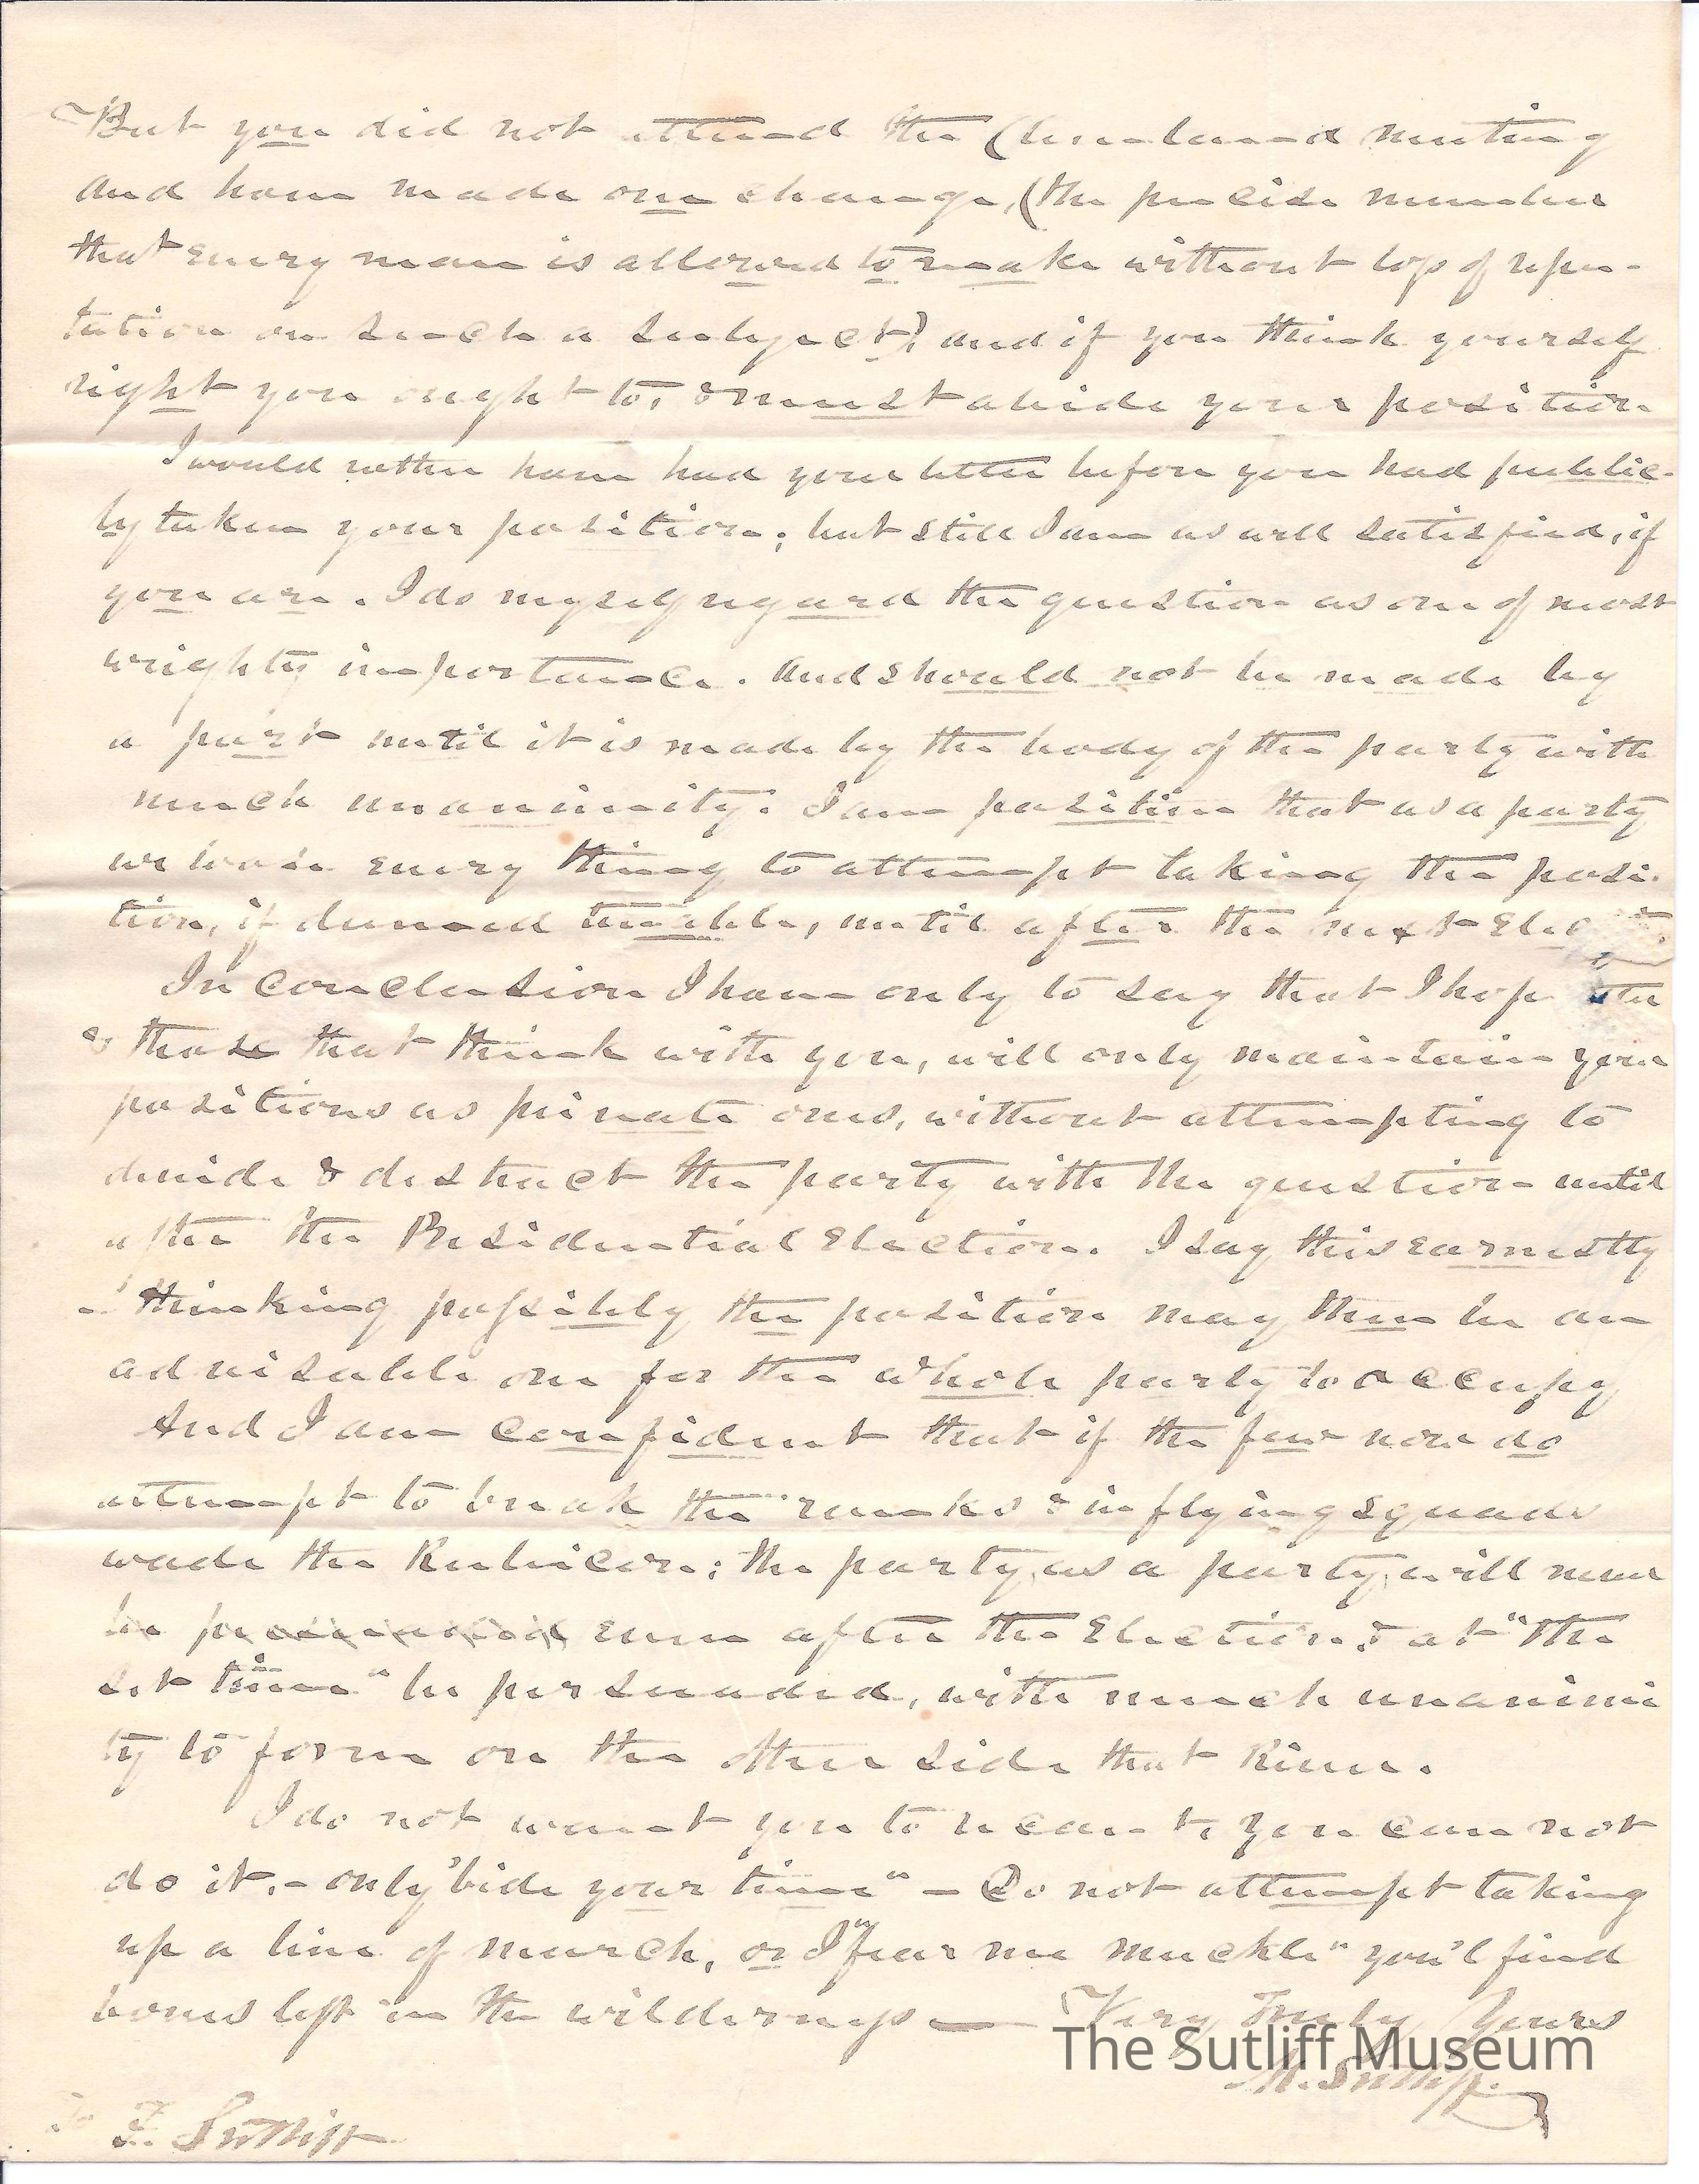 But you did not attend the Cleaveland meeting
and have made one change, (the precise number
that every man is allowed to make without loss of repu-
tation on such a subject) and if you think yourself
right you ought to, & must abide your position
I would rather have had your letter before you had public-
ly taken your position; but still I am as well satisfied, if
you are. I do myself regard the question as one of most
wrighty importance. And should not be made by
a part until it is made by the body of the party with
much unanimity. I am positive that as a party
we loose every thing to attempt taking the posi-
tion, if deemed tenable, until after the next Elec
In conclusion I have only to say that I hope
& those that think with you, will only maintain your
positions as private ones, without attempting to
devide & distract the party with the question until
after the Presidential Election. I say this earnestly
thinking possibly the position may then be an
advisable one for the whole party to occupy
And I am confident that if the few now do
attempt to break the ranks & in flying squads
wade the Rubicon; the party, as a party, will never
be even after the Election, & at "the
set time" be persuaded, with much unanimi
ty to form on the other side that River.
I do not want you to recant, you can not
do it. - only "bide your time" - Do not attempt taking
up a line of march, or I "fear me muckle" you'l find
bones left in the wilderness — Very Truly Yours
The Sutliff Museum
M. Sutliff.
To F. Sutliff